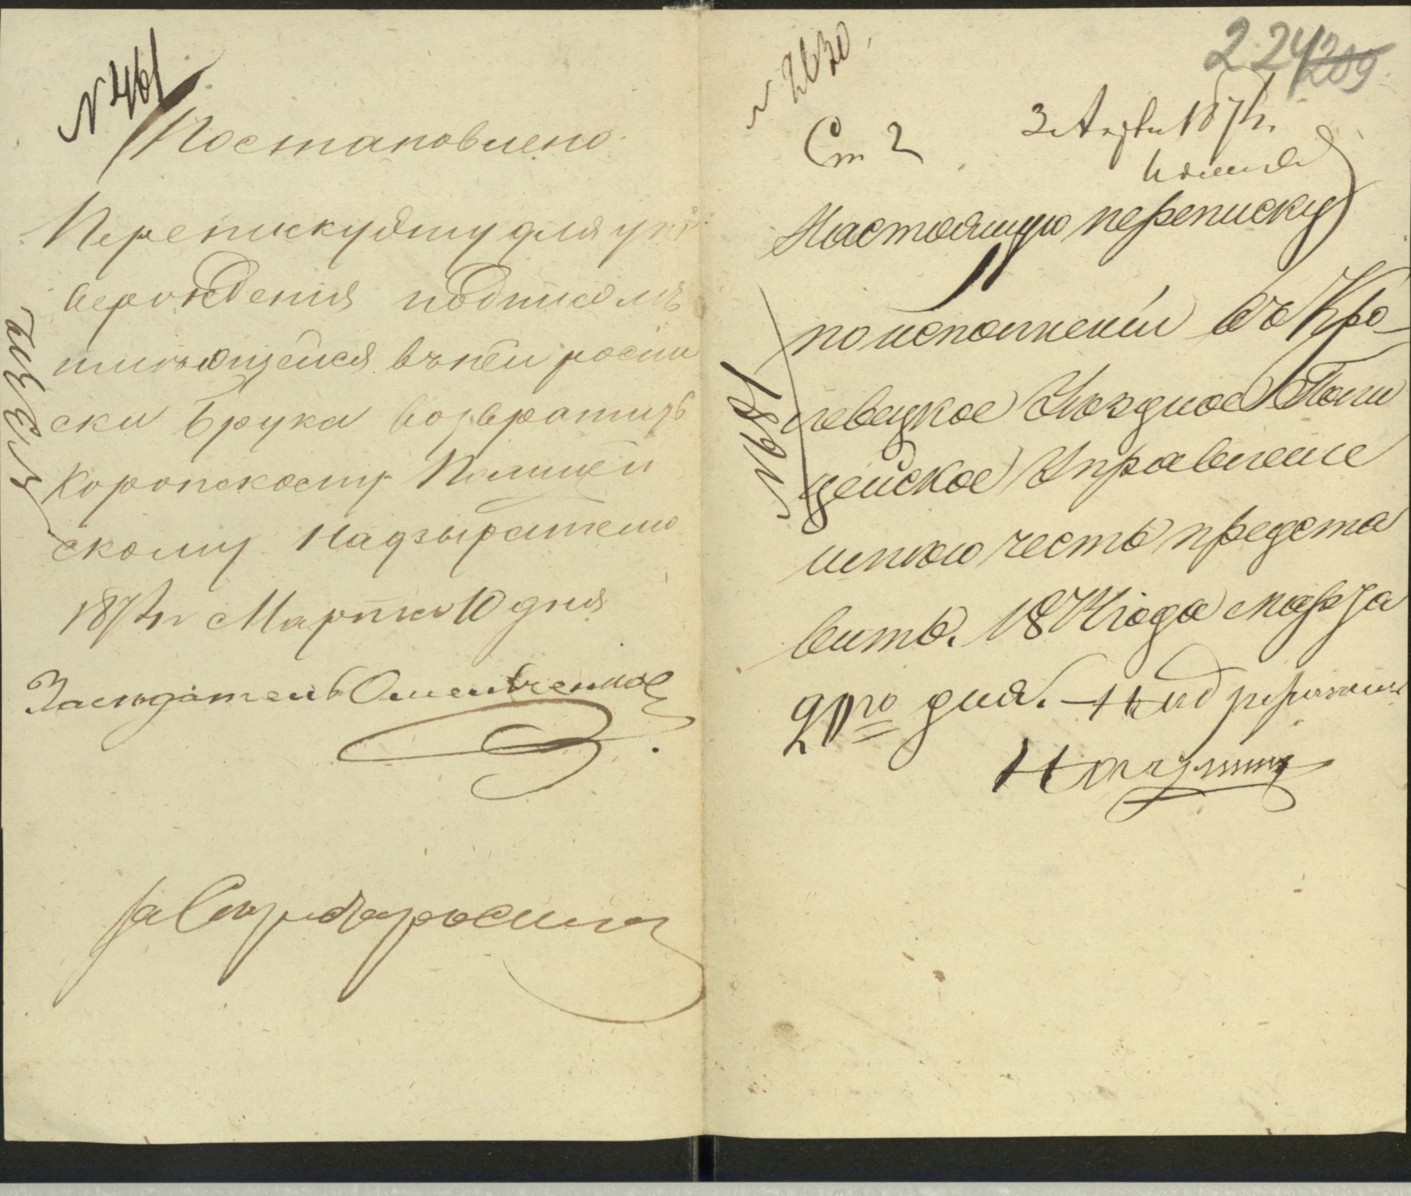 № 461
Постановлено
Переписку эту для ут
верждения подписомъ
имѣющейся въ ней роспи
ски Брука возвратить
Коропскому Полицей
скому Надзирателю
1874 г. Марта 10 дня
Засѣдатель Омельченко
№ 2630
224 209
Ст 2
3 Апрѣля 1874 г.
Настоящую переписку
по исполненіи въ Кро-
левецкое Уѣздное Поли
цейское Управленіе
имѣю честь предста
вить. 1874 года марта
20го дня. Надзиратель
№ 681